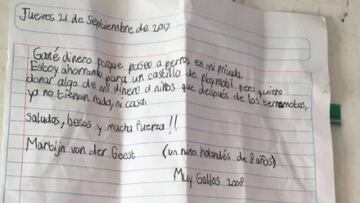 Jueves 21 de Septiembre de 2017
Gané dinero porque paseo a perros en mi privada.
Estoy ahorrando para un castillo de playmobil pero quiero
donar algo de mi dinero a niños que después de los terremotos,
ya no tienen nada, ni casa.
saludos, besos y mucha fuerza!!
Martijn van der Geest (un niño holandés de 8 años)
Muy Gallos 2008